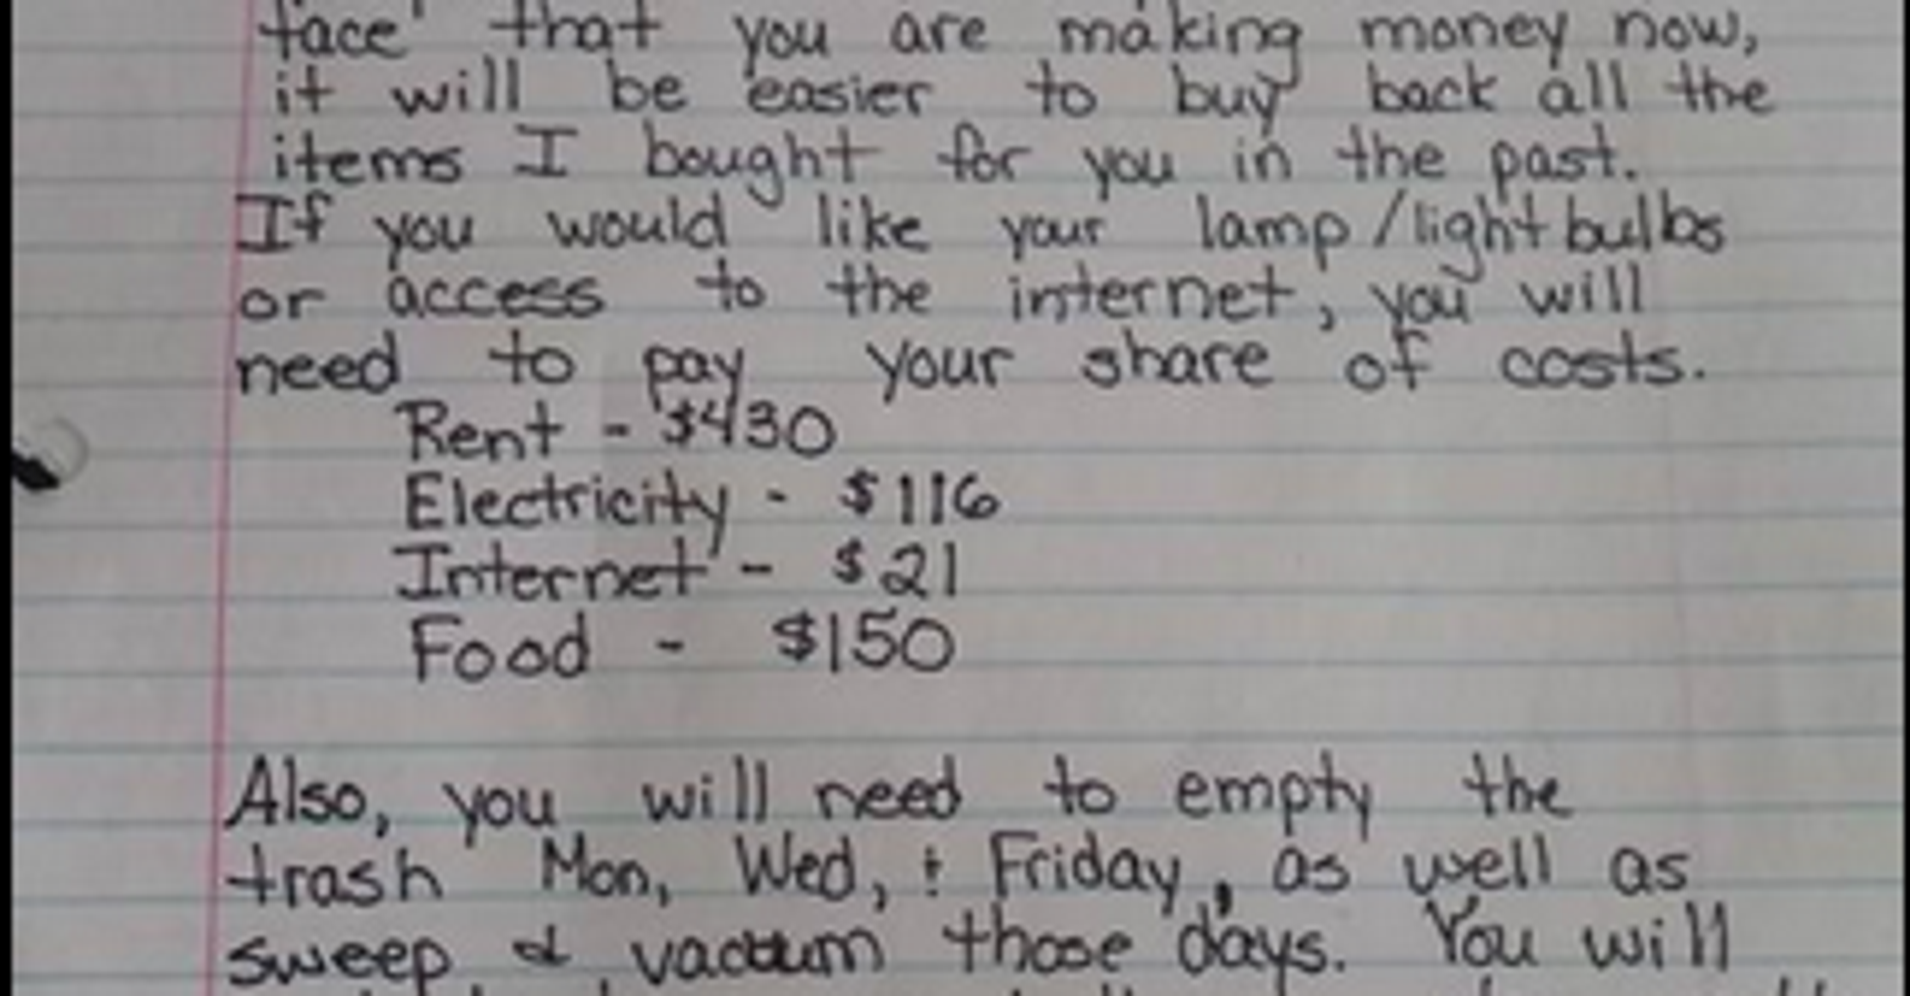 face' that you are making money now,
it will be easier to buy back all the
items I bought for you in the past.
If you would like your lamp/lightbulbs
or access to the internet, you will
need to pay your share of costs.
Rent - $430
Electricity - $116
Internet - $21
Food - $150
Also, you will need to empty the
trash Mon, Wed, & Friday, as well as
sweep & vacuum those days. You will